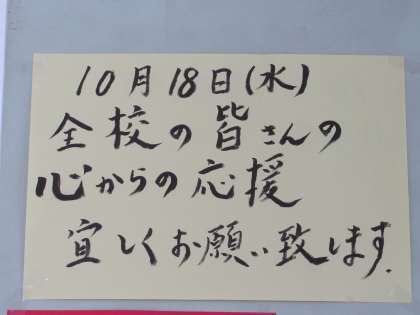 10月18日(水)
全校の皆さんの
心からの応援
宜しくお願い致します.